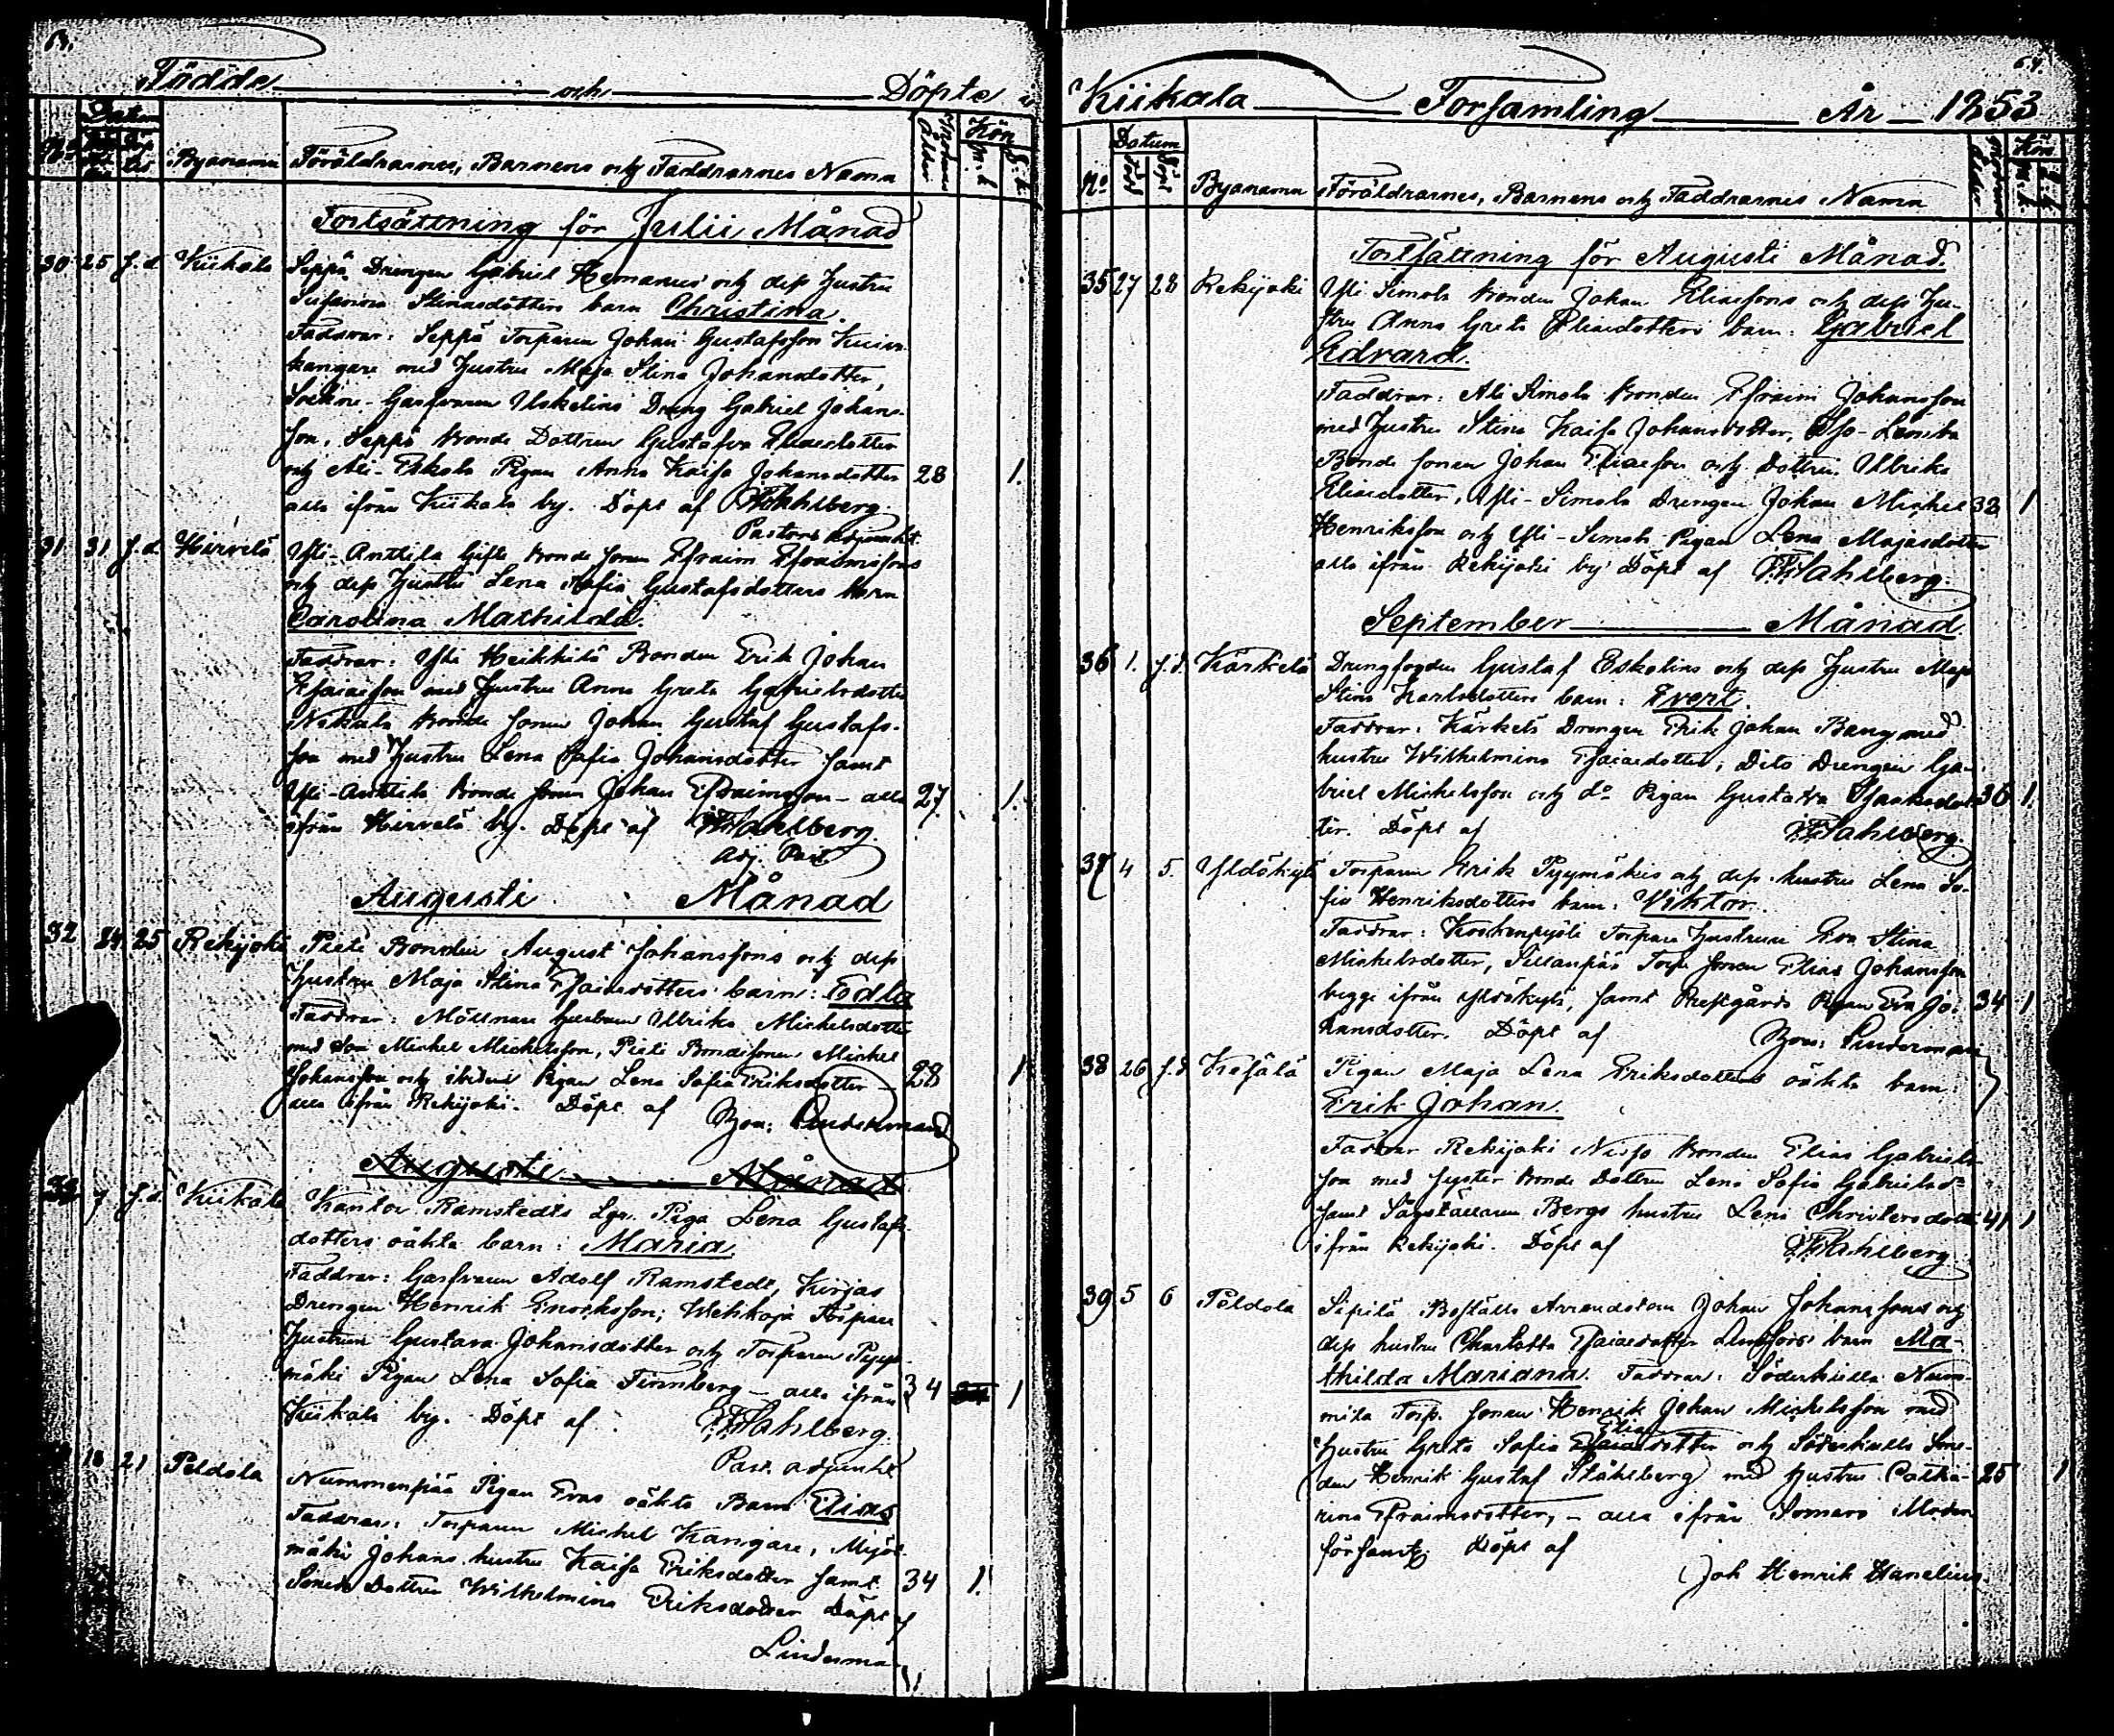 Födde och Döpte i
Datum
Byanamn Föräldrarnes, Barnens och Faddrarnes Namn
Modrens Ålder
Kön
M.k.
Q.k.
Fortsättning för Julii Månad
30 25 f.d. Kiikala Seppä Drengen Gabriel Hemanus och dess hustru
Stinasdotters barn Christina.
Faddrar: Seppä Torparen Johan Gustafsson
kangare med hustru Maja Stina Johansdotter,
Garfvaren Uskelins Dräng Gabriel Johans-
son, Seppä Bonde Dottren Gustafva
och Ali-Eskola Pigan Anna Kaisa Johansdotter 28 1.
alla ifrån Kiikala by. Döpt af Wahlberg
Pastors adjunkt.
31 31 f.d. Hirvelä Yli-Anttila Gifte Bonde sonen Efraim Efraimssons
och dess hustru Lena Sofia Gustafsdotters barn
Carolina Mathilda.
Faddrar: Yli Heikkilä Bonden Erik Johan
Esaiasson med hustru Anna Greta Gabrielsdotter
Nikala Bonde sonen Johan Gustaf Gustafs-
son med hustru Lena Sofia Johansdotter samt
Yli-Anttila Bonde sonen Johan Efraimsson - alla 27 1.
ifrån Hirvelä by. Döpt af Wahlberg
Adj. Past.
Augusti Månad
32 24 25 Rekijoki Pieti Bonden August Johanssons och dess
hustru Maja Stina Esaiedotters barn: Edla
Faddrar: Ulrika Michelsdotter
med son Michel Michelsson, Pieti Bondesonen Michel
Johansson och ibidem Pigan Lena Sofia Eriksdotter - 28 1
alla ifrån Rekijoki. Döpt af Linderman
Augusti Månad
7 f.d. Kiikala Kantor Ramstedts Piga Lena Gustafs-
dotters oäkta barn: Maria.
Faddrar: Garfvaren Adolf Ramstedt, Kirjas
Drengen Henrik Enocksson, Torpare
hustrun Gustava Johansdotter och Torparen Pyy-
mäki Pigan Lena Sofia Finnberg - alla ifrån 34 1
Kiikala by. Döpt af Wahlberg.
Past. adjunkt
18 21 Peldola Nummenpää Pigan Evas oäkta Barn Elias
Faddrar: Torparen Michel Kangare,
mäki Johans hustru Kaisa Eriksdotter samt 34 1.
Dottren Wilhelmina Eriksdotter Döpt af
Linderma
64.
Kiikala Församling År 1853
Datum
No Byanamn Föräldrarnes, Barnens och Faddrarnes Namn
Född
Döpt
Kön
Fortsättning för Augusti Månad.
35 27 28 Rekijoki Yli Simola Bonden Johan Eliassons och dess hu-
stru Anna Greta Eliaedotters barn: Gabriel
Edvard.
Faddrar: Ali Simola Bonden Efraim Johansson
med hustru Stina Kaisa Johansdotter,
Bonde sonen Johan Eliasson och Dottren Ulrika
Eliaedotter, Yli-Simola Drengen Johan Michel 32 1
Henriksson och Yli-Simola Pigan Lena Majasdotter
alla ifrån Rekijoki by Döpt af Wahlberg.
September Månad.
36 1. f.d. Kärkelä Drengfogden Gustaf Eskolins och dess hustru Maja
Stina Karlsdotters barn: Evert.
Faddrar: Kärkelä Drengen Erik Johan Bang med
hustru Wilhelmina Esaiaedotter, Dito Drengen Ga-
briel Michelsson och do Pigan Gustafva Isaksdot- 36 1.
ter. Döpt af Wahlberg.
37 4 5. Yldökylä Torparen Erik Pyymäkis och dess hustru Lena So-
fia Henriksdotters barn: Viktor.
Faddrar: Torpare hustrun Eva Stina
Michelsdotter, Sillanpää Torp. sonen Elias Johansson
begge ifrån Yldökylä, samt Prestgårds Pigan Eva Jo- 34 1
hansdotter. Döpt af Linderman
38 26 f.d. Pigan Maja Lena Eriksdotters oäkta barn:
Erik Johan.
Faddrar Rekijoki Bonden Elias Gabriels-
son med syster Bonde Dottren Lena Sofia Gabrielsd:r
samt Bergs hustru Lena Christersdotter 41 1
ifrån Rekijoki. Döpt af Wahlberg
39 5 6 Peldola Sipilä Boställs Arrendatorn Johan Johanssons och
dess hustru Charlotta Esaiaedotter barn Ma-
thilda Mariana. Faddrar: Söderkulla
Torp. sonen Henrik Johan Michelsson med
hustru Greta Sofia Elias dotter och Söderkulla
Henrik Gustaf Ståhlberg med hustru Catha- 25 1
rina Efraimsdotter, - alla ifrån Somero Moder
församl: Döpt af
Joh Henrik Hanelius.